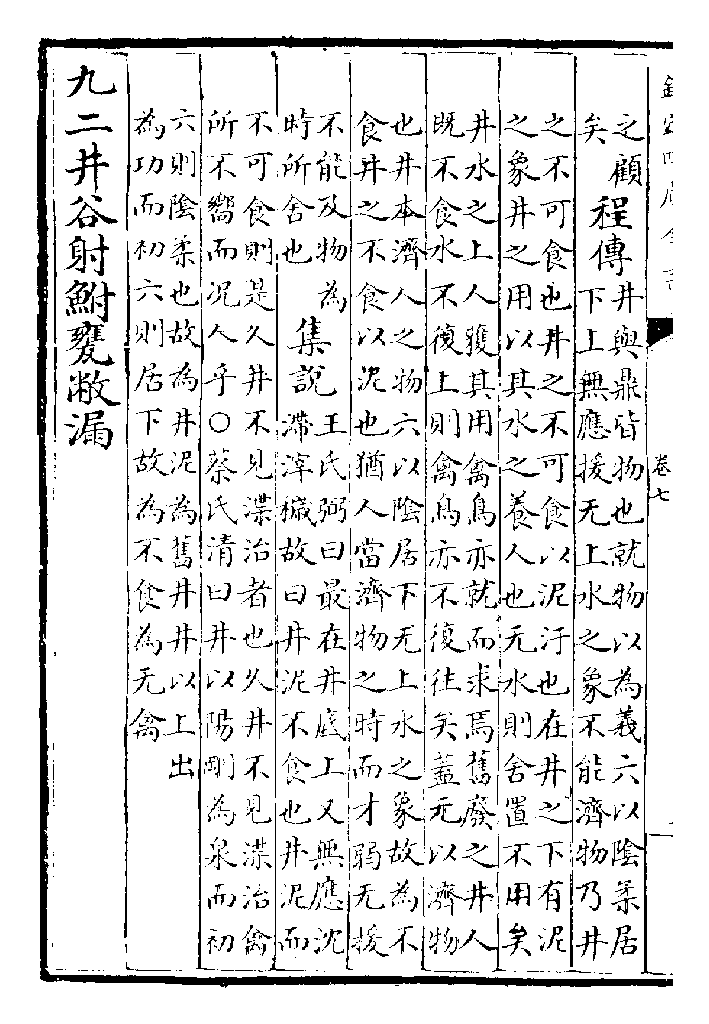 欽定四庫全書
卷七
之顧
矣
程傳
井與鼎皆物也就物以為義六以陰柔居
下上無應援无上水之象不能濟物乃井
之不可食也井之不可食以泥汙也在井之下有泥
之象井之用以其水之養人也无水則舍置不用矣
井水之上人獲其用禽鳥亦就而求焉舊廢之井人
既不食水不復上則禽鳥亦不復往矣蓋无以濟物
也井本濟人之物六以陰居下无上水之象故為不
食井之不食以泥也猶人當濟物之時而才弱无援
不能及物為
時所舍也
集說
王氏弼曰最在井底上又無應沈
滯滓穢故曰井泥不食也井泥而
不可食則是久井不見渫治者也久井不見渫治禽
所不嚮而況人乎○蔡氏清曰井以陽剛為泉而初
六則陰柔也故為井泥為舊井井以上出
為功而初六則居下故為不食為无禽
九二井谷射鮒甕敝漏